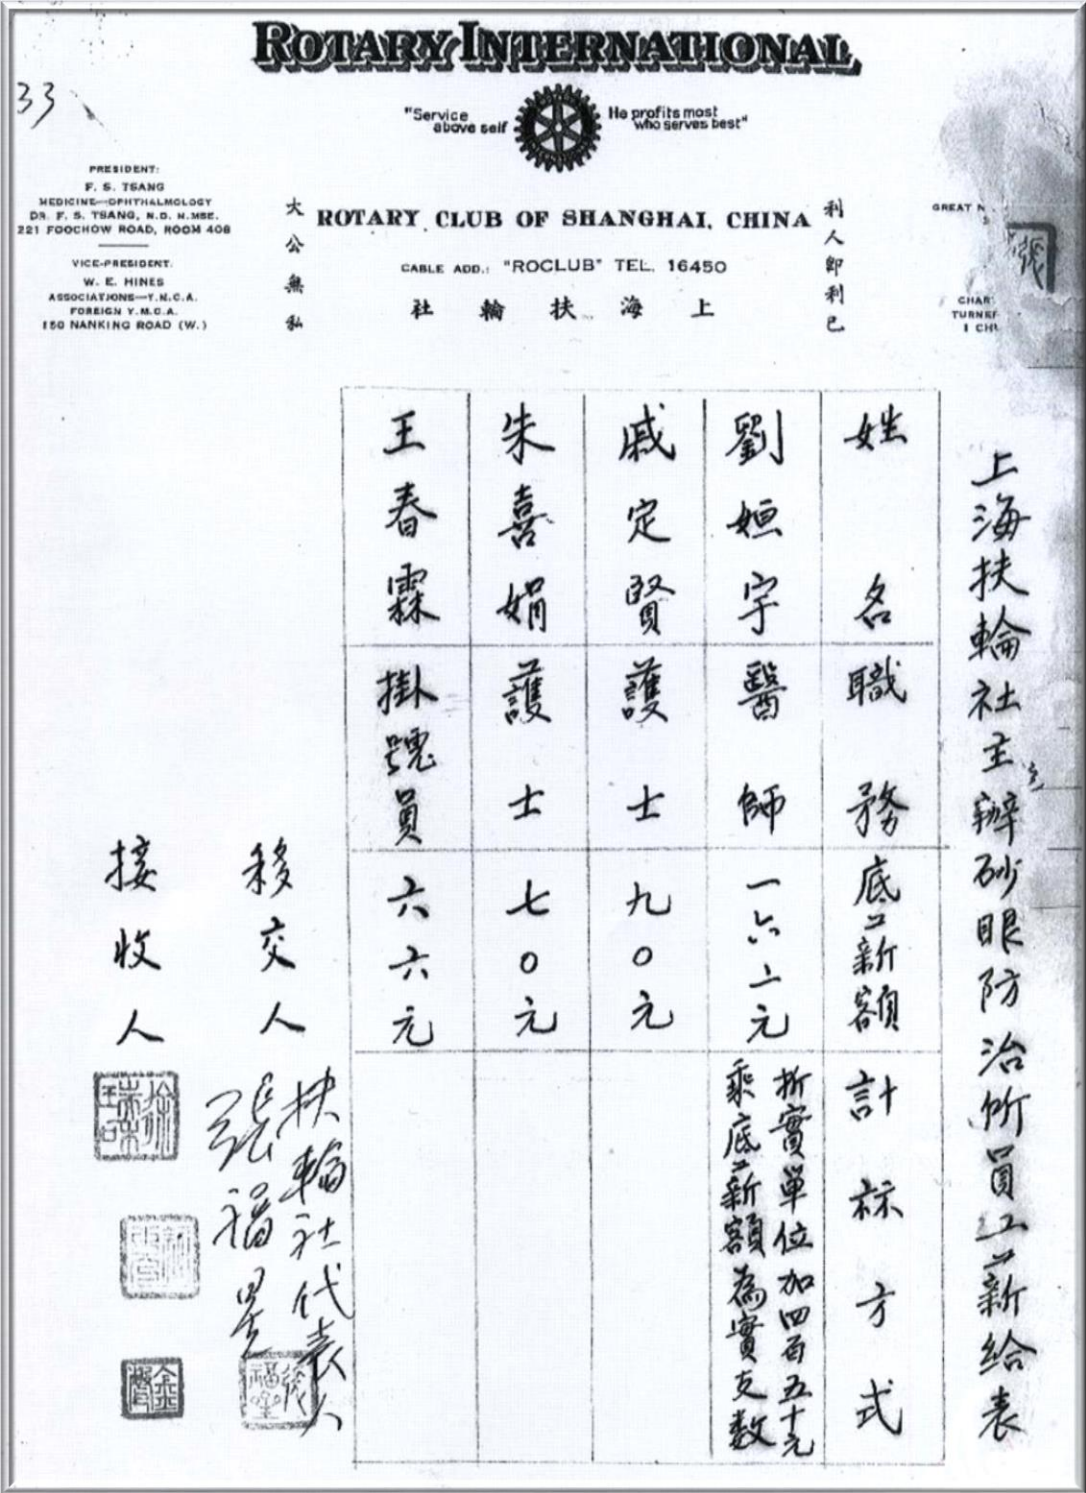 ROTARY INTERNATIONAL
33
"Service above self
He profits most who serves best"
PRESIDENT:
F. S. TSANG
MEDICINE—OPHTHALMOLOGY
DR. F. S. TSANG, N.D. N.MSE.
221 FOOCHOW ROAD, ROOM 408
VICE-PRESIDENT.
W. E. HINES
ASSOCIATIONS—Y.M.C.A.
FOREIGN Y.M.C.A.
150 NANKING ROAD (W.)
大公無私
ROTARY CLUB OF SHANGHAI, CHINA
利人即利己
CABLE ADD.: "ROCLUB" TEL. 16450
上海扶輪社
GREAT N
CHAR
TURNER
1 CH
張
上海扶輪社主辦砂眼防治所員工薪給表
姓名 職務 底薪額 計祘方式
劉姮宇 醫師 一六二元 折實單位加四百五十元
乘底薪額為實支數
戚定賢 護士 九〇元
朱喜娟 護士 七〇元
王春霖 掛號員 六六元
移交人 扶輪社代表人
張福星
張福星
接收人